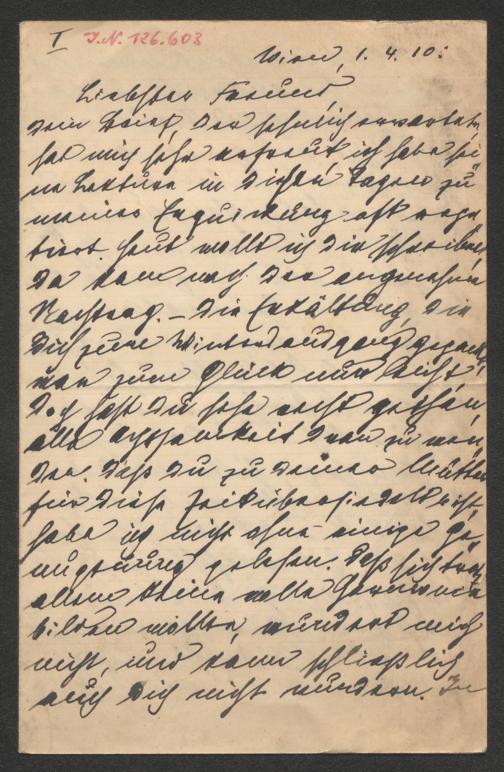 I J.N. 126.603
Wien, 1. 4. 10:
Liebster Freund,
dein Brief, der sehnlich erwartete,
hat mich sehr erfreut, ich habe sei
ne Lektüre in diesen Tagen zu
meiner Erquickung oft repe
tiert. Heut wollt ich dir schreiben,
da kam noch der angenehme
Nachtrag. – Die Erkältung, die
Dich zum Winterausgang gepackt,
war zum Glück nur leicht
doch hast du sehr recht gethan,
alle Achtsamkeit dran zu wen
den. Daß du zu deiner Mutter
für diese Zeit übersiedelt bist,
habe ich nicht ohne einige Ge
nugtuung gelesen. Daß sich trotz
allem keine volle Harmonie
bilden wollte, wundert mich
nicht, und kann schließlich
auch dich nicht wundern. In